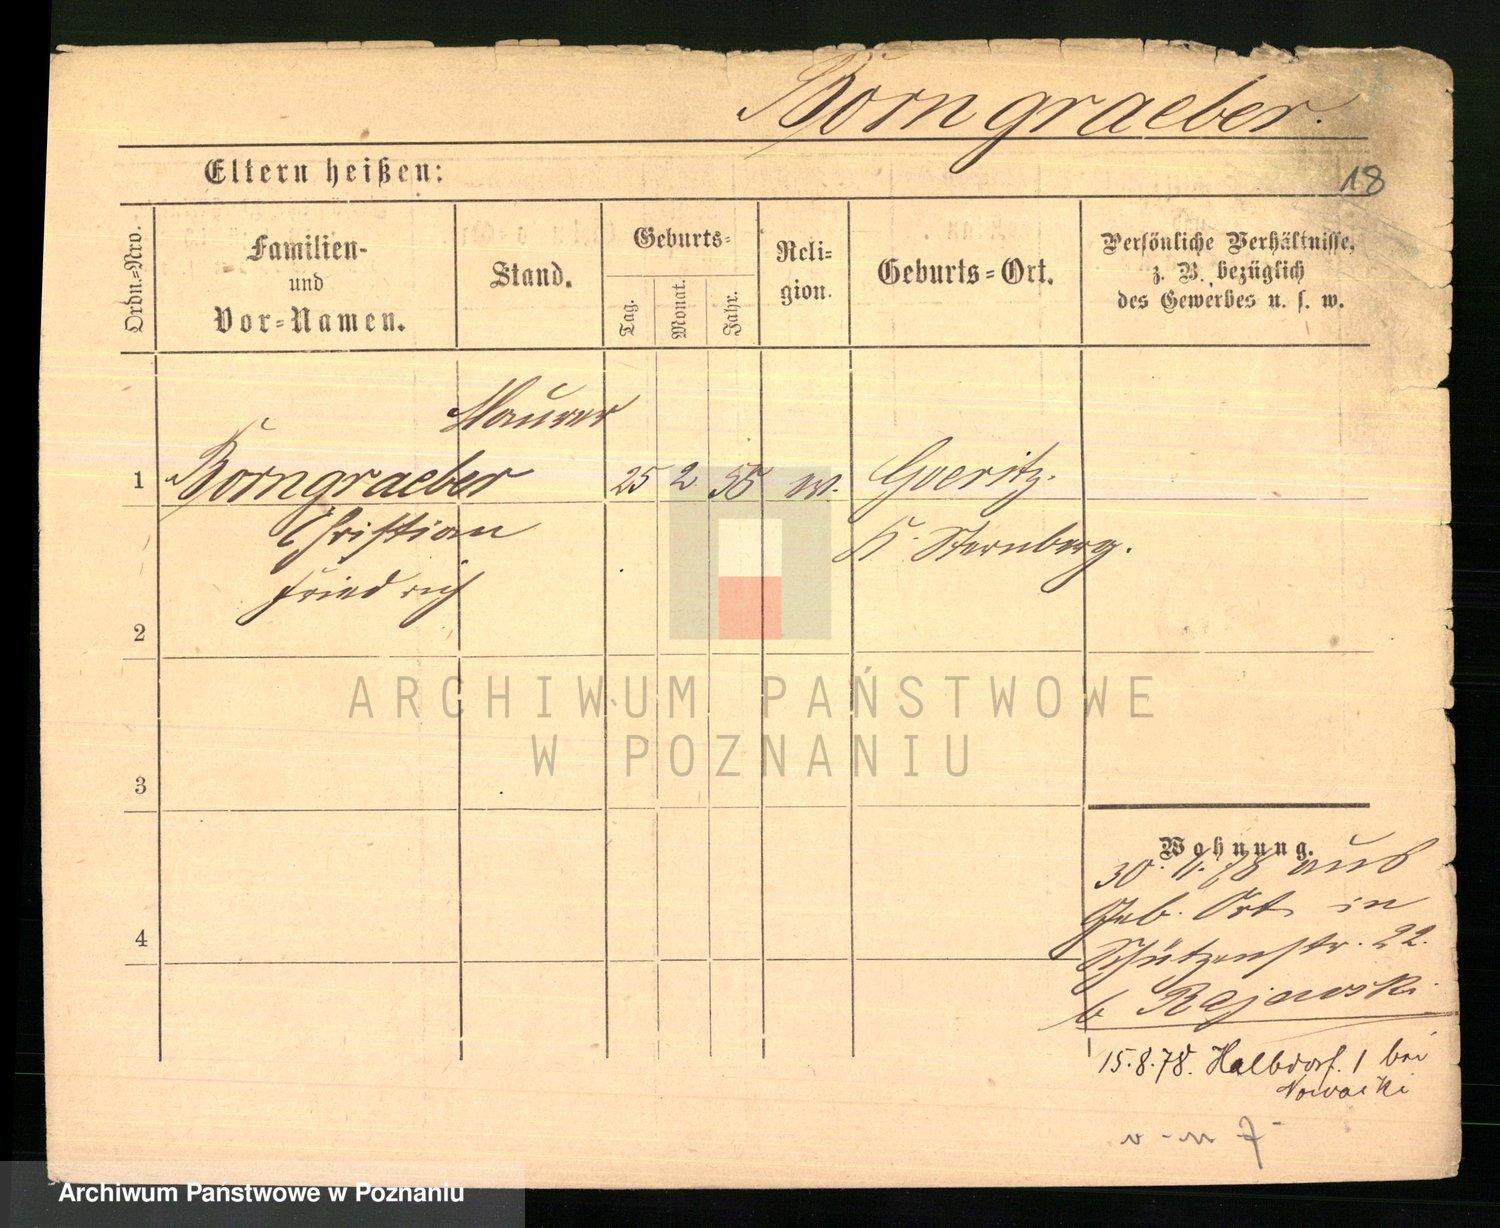 Borngraeber.
Eltern heißen:
18
Ordn.=Nro.
Familien-
und
Vor=Namen.
Stand.
Geburts=
Tag.
Monat.
Jahr.
Reli=
gion.
Geburts=Ort.
Persönliche Verhältnisse,
z. B. bezüglich
des Gewerbes u. s. w.
Maurer
1 Borngraeber 25 2 55 ev. Goeritz.
Christian K. Sternberg.
Friedrich
2
3
4
Wohnung.
30. 4. 78 aus
Geb. Ort in
Schützenstr. 22.
b Rajewski
15.8.78. Halbdorf. 1 bei
Nowacki
ARCHIWUM PAŃSTWOWE
W POZNANIU
Archiwum Państwowe w Poznaniu